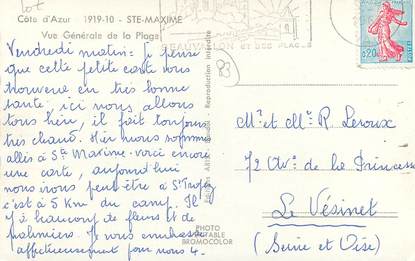 Côte d'Azur 1919-10 - STE-MAXIME
Vue Générale de la Plage
Vendredi matin - Je pense
que cette petite carte vous
trouvera en très bonne
santé ; ici nous allons
tous bien, il fait toujours
très chaud. Hier nous sommes
allés à Ste Maxime - voici encore
une carte, aujourd'hui
nous irons peut être à St Tropez
c'est à 5 Km du camp. Il
y a beaucoup de fleurs et de
palmiers. Nous vous embrassons
affectueusement pour nous 4.
Reproduction interdite
PHOTO
VÉRITABLE
BROMOCOLOR
ET DES PLAGES
83
0,20
Mr et Mme R. Leroux
72 Av. de la Princesse
Le Vésinet
(Seine et Oise)